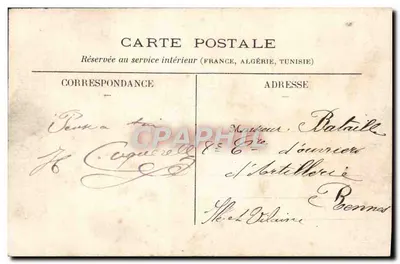 CARTE POSTALE
Réservée au service intérieur (FRANCE, ALGÉRIE, TUNISIE)
CORRESPONDANCE
ADRESSE
Pense à toi
CARTHAPHILIE
Monsieur Bataille
Cie d'ouvriers
d'Artillerie
Rennes
Ille et Vilaine